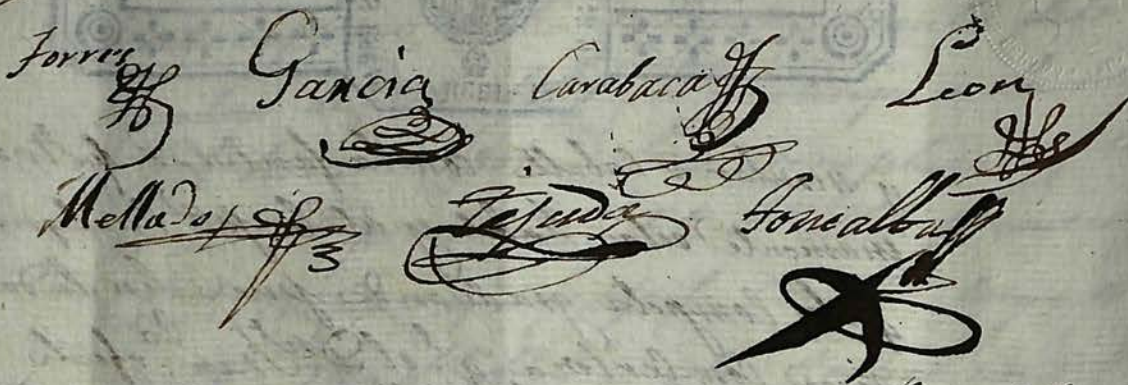 Torres Garcia Carabaca Leon
Mellado Tejada Foncalba